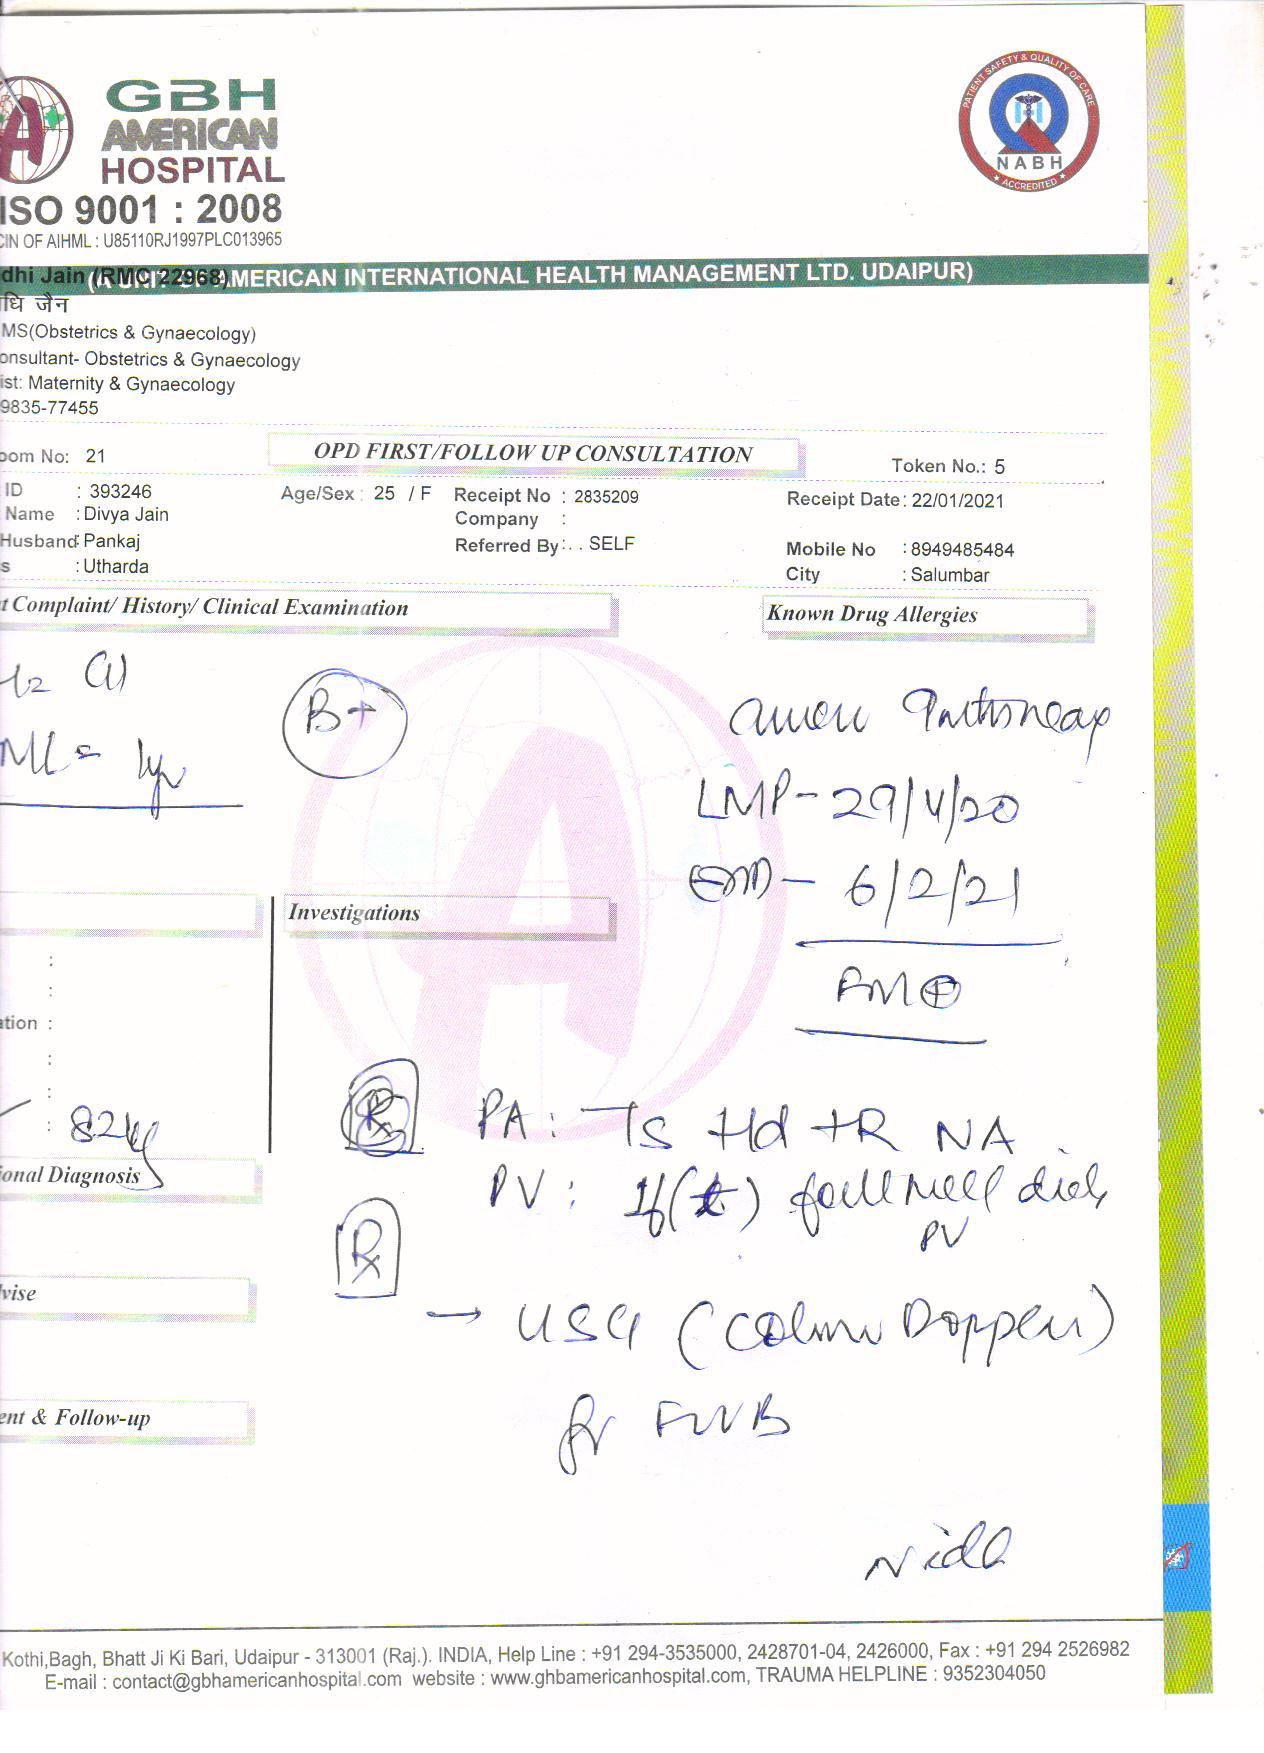 GBH
AMERICAN
HOSPITAL
ISO 9001 : 2008
CIN OF AIHML : U85110RJ1997PLC013965
PATIENT SAFETY & QUALITY OF CARE
NABH
ACCREDITED
dhi Jain (RMC 22968)
AMERICAN INTERNATIONAL HEALTH MANAGEMENT LTD. UDAIPUR)
धि जैन
MS(Obstetrics & Gynaecology)
onsultant- Obstetrics & Gynaecology
ist: Maternity & Gynaecology
9835-77455
oom No: 21
OPD FIRST/FOLLOW UP CONSULTATION
Token No.: 5
ID : 393246 Age/Sex : 25 / F Receipt No : 2835209 Receipt Date : 22/01/2021
Name : Divya Jain Company :
Husband: Pankaj Referred By: . . SELF Mobile No : 8949485484
s : Utharda City : Salumbar
t Complaint/ History/ Clinical Examination
Known Drug Allergies
B+
ML = 1yr
LMP - 29/4/20
EDD - 6/2/21
FM ⊕
Investigations
:
:
ation :
:
:
: 82kg
Rx PA : Ts Hd +R NA
PV :
PV
ional Diagnosis
Rx
→ USG (Colour Doppler)
for FWB
vise
ent & Follow-up
Kothi,Bagh, Bhatt Ji Ki Bari, Udaipur - 313001 (Raj.). INDIA, Help Line : +91 294-3535000, 2428701-04, 2426000, Fax : +91 294 2526982
E-mail : contact@gbhamericanhospital.com website : www.ghbamericanhospital.com, TRAUMA HELPLINE : 9352304050